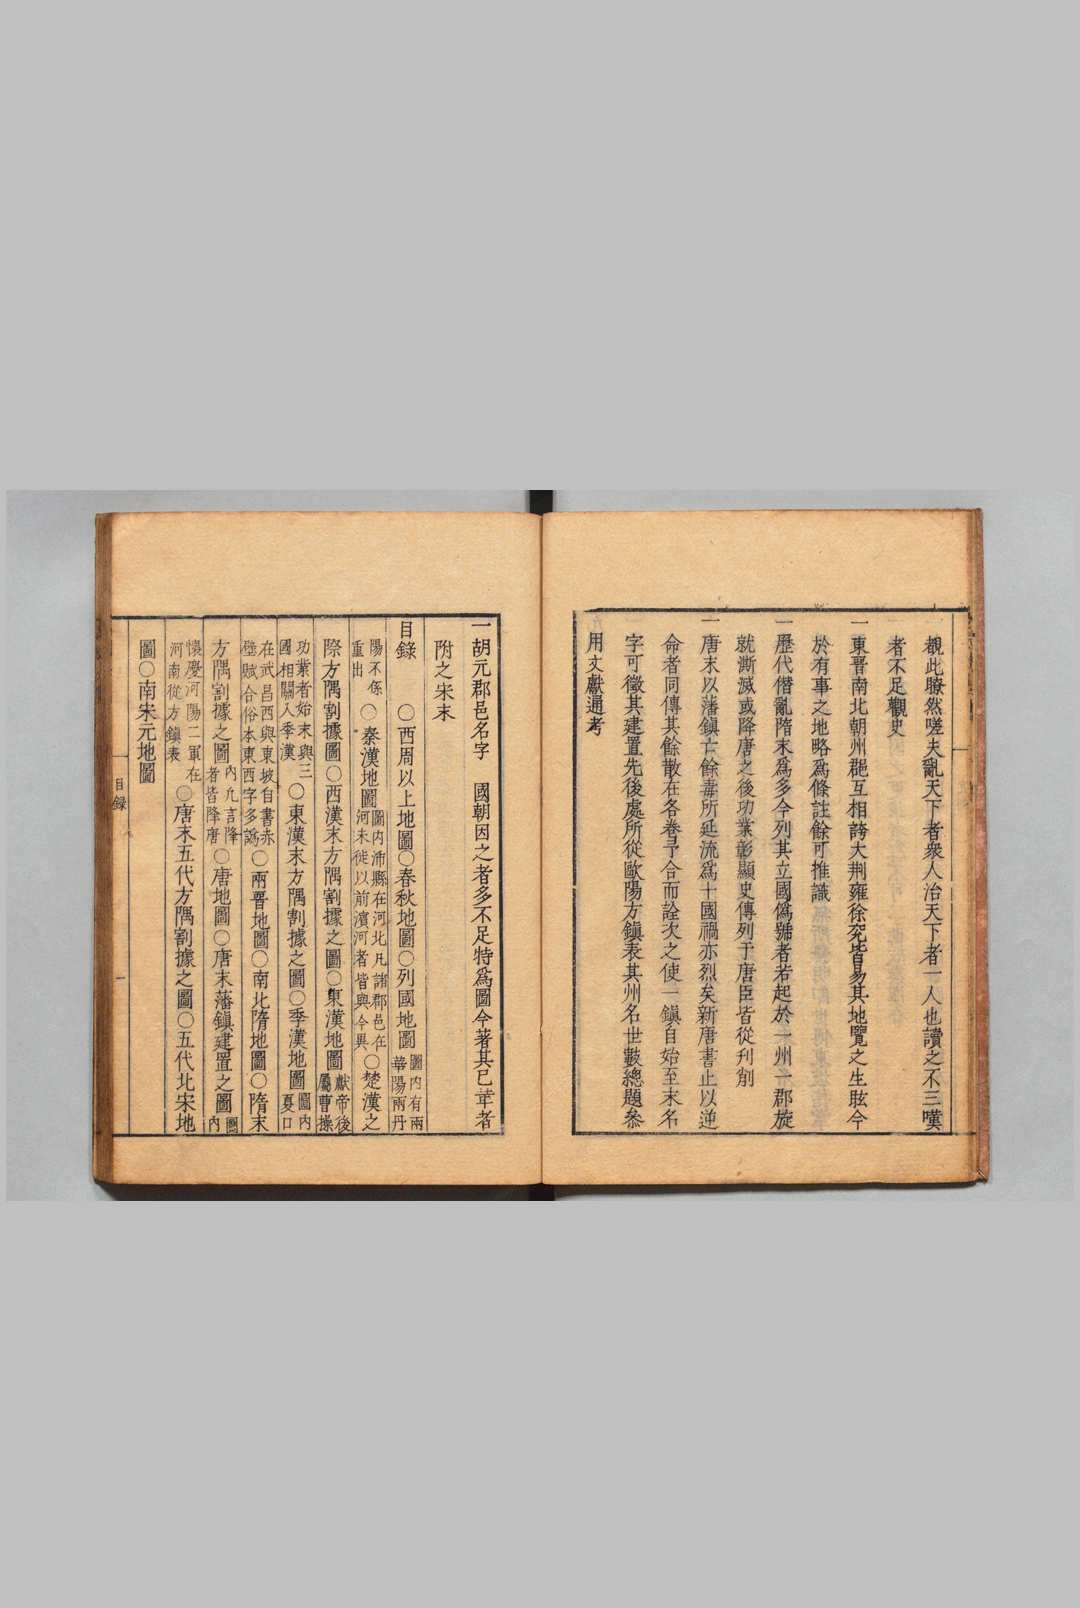 覩此瞭然嗟夫亂天下者衆人治天下者一人也讀之不三嘆
者不足觀史
一東晉南北朝州郡互相誇大荆雍徐兗皆易其地覽之生眩今
於有事之地略爲條註餘可推識
一歷代僭亂隋末爲多今列其立國僞號者若起於一州一郡旋
就澌滅或降唐之後功業彰顯史傳列于唐臣皆從刋削
一唐末以藩鎭亡餘毒所延流爲十國禍亦烈矣新唐書止以逆
命者同傳其餘散在各卷予合而詮次之使一鎭自始至末名
字可徵其建置先後處所從歐陽方鎭表其州名世數總題叅
用文獻通考
一胡元郡邑名字　國朝因之者多不足特爲圖今著其已革者
附之宋末
目錄　〇西周以上地圖〇春秋地圖〇列國地圖圖內有兩華陽兩丹
陽不係重出〇秦漢地圖圖內沛縣在河北凡諸郡邑在河未徙以前濵河者皆與今異〇楚漢之
際方隅割據圖〇西漢末方隅割據之圖〇東漢地圖獻帝後屬曹操
功業者始末與三國相關入季漢〇東漢末方隅割據之圖〇季漢地圖圖內夏口
在武昌西與東坡自書赤壁賦合俗本東西字多譌〇兩晉地圖〇南北隋地圖〇隋末
方隅割據之圖內凡言降者皆降唐〇唐地圖〇唐末藩鎭建置之圖圖內
懷慶河陽二軍在河南從方鎭表〇唐末五代方隅割據之圖〇五代北宋地
圖〇南宋元地圖
目録
一